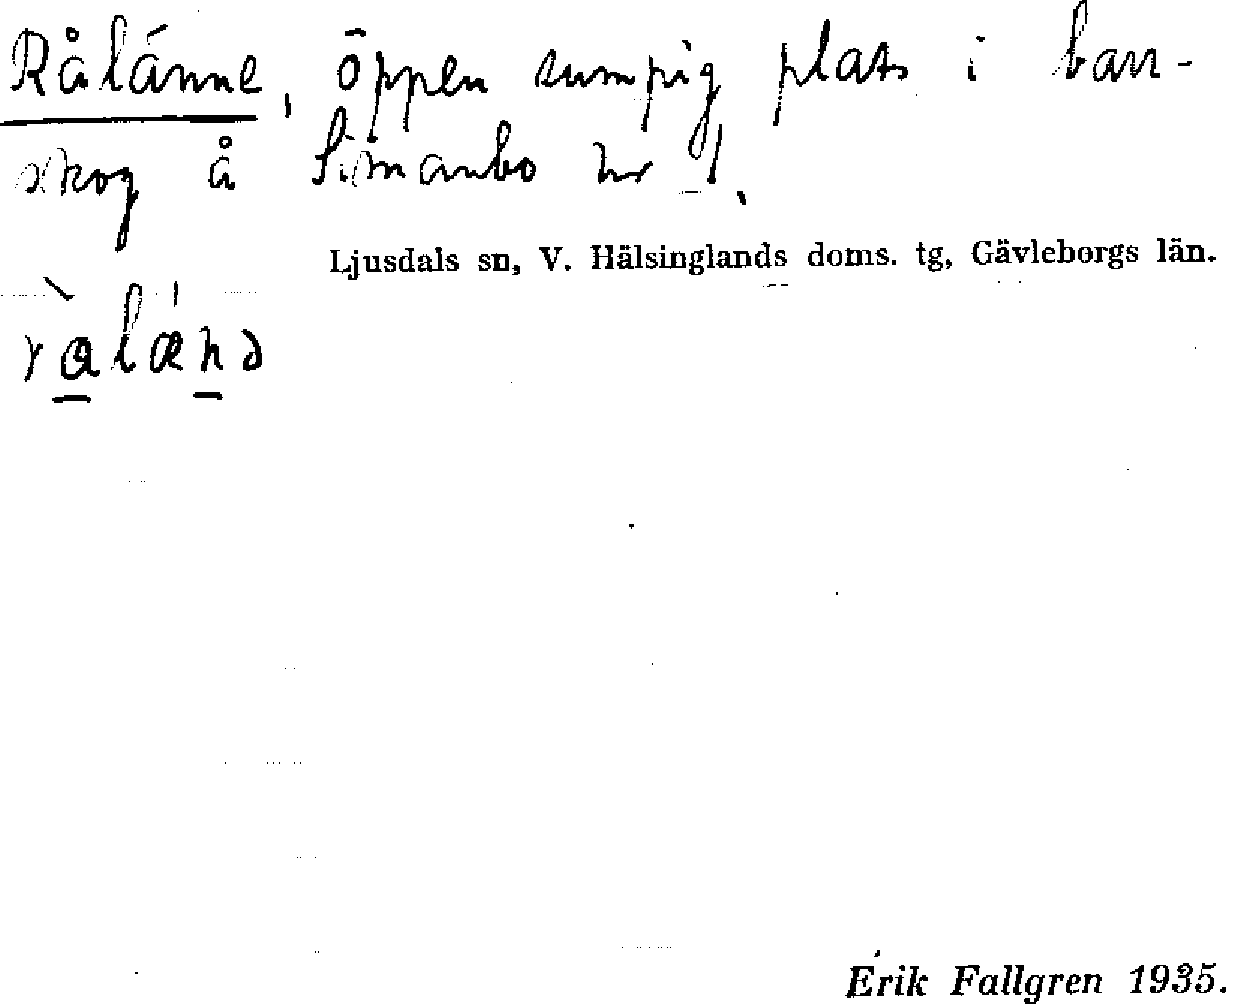 Rålänne, öppen sumpig plats i barr-
skog å Simanbo nr 1.
Ljusdals sn, V. Hälsinglands doms. tg, Gävleborgs län.
rⱥlænə
Erik Fallgren 1935.